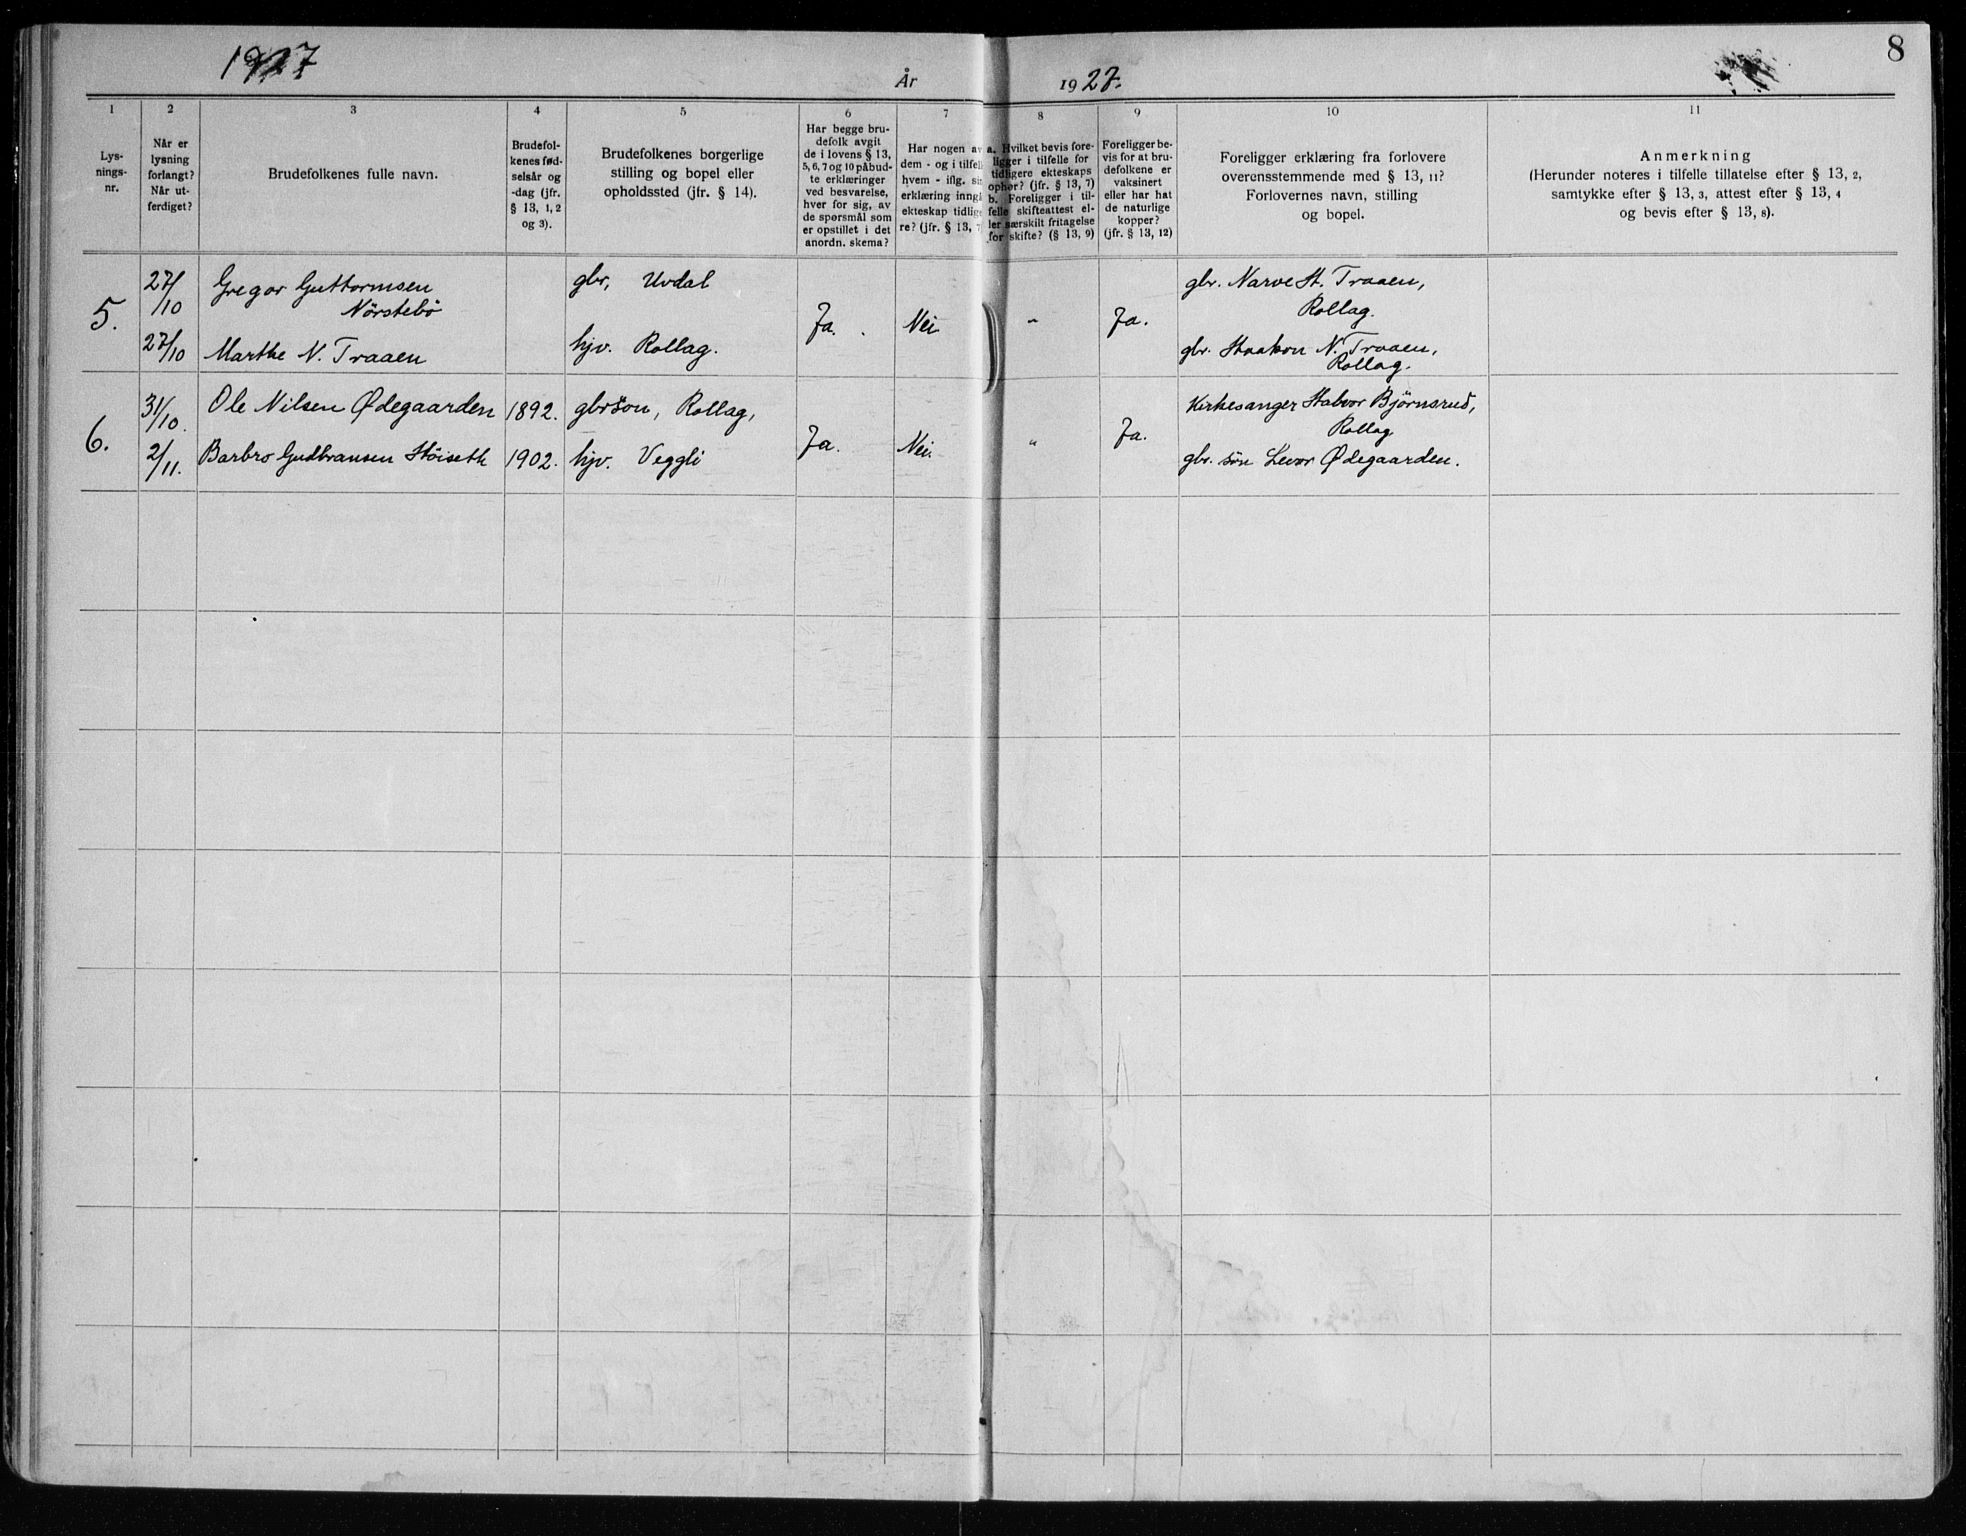 1927
År 1927.
8
1 2 3 4 5 6 7 8 9 10 11
Lys-
nings-
nr.
Når er
lysning
forlangt?
Når ut-
ferdiget?
Brudefolkenes fulle navn.
Brudefol-
kenes fød-
selsår og
-dag (jfr.
§ 13, 1, 2
og 3).
Brudefolkenes borgerlige
stilling og bopel eller
opholdssted (jfr. § 14).
Har begge bru-
defolk avgit
de i lovens § 13,
5, 6, 7 og 10 påbud-
te erklæringer
ved besvarelse,
hver for sig, av
de spørsmål som
er opstillet i det
anordn. skema?
Har nogen av
dem - og i tilfell
hvem - iflg. sin
erklæring inngå
ekteskap tidlige
re? (jfr. § 13, 7
a. Hvilket bevis fore-
ligger i tilfelle for
tidligere ekteskaps
ophør? (jfr. § 13, 7)
b. Foreligger i til-
felle skifteattest el-
ler særskilt fritagelse
for skifte? (§ 13, 9)
Foreligger be-
vis for at bru-
defolkene er
vaksinert
eller har hat
de naturlige
kopper?
(jfr. § 13, 12)
Foreligger erklæring fra forlovere
overensstemmende med § 13, 11?
Forlovernes navn, stilling
og bopel.
Anmerkning
(Herunder noteres i tilfelle tillatelse efter § 13, 2,
samtykke efter § 13, 3, attest efter § 13, 4
og bevis efter § 13, 8).
5.
27/10 Gregor Guttormsen
Nörstebö
gbr, Uvdal
27/10 Marthe N. Traaen
hjv. Rollag.
Ja. Nei " Ja.
gbr. Narve H. Traaen,
Rollag.
gbr. Haakon N. Traaen,
Rollag.
6.
31/10. Ole Nilsen Ødegaarden 1892. gbrsön, Rollag,
2/11. Barbro Gudbransen Höiseth 1902. hjv. Veggli
Ja. Nei. " Ja.
Kirkesanger Halvor Bjørnsrud,
Rollag
gbr. sön Levor Ødegaarden.